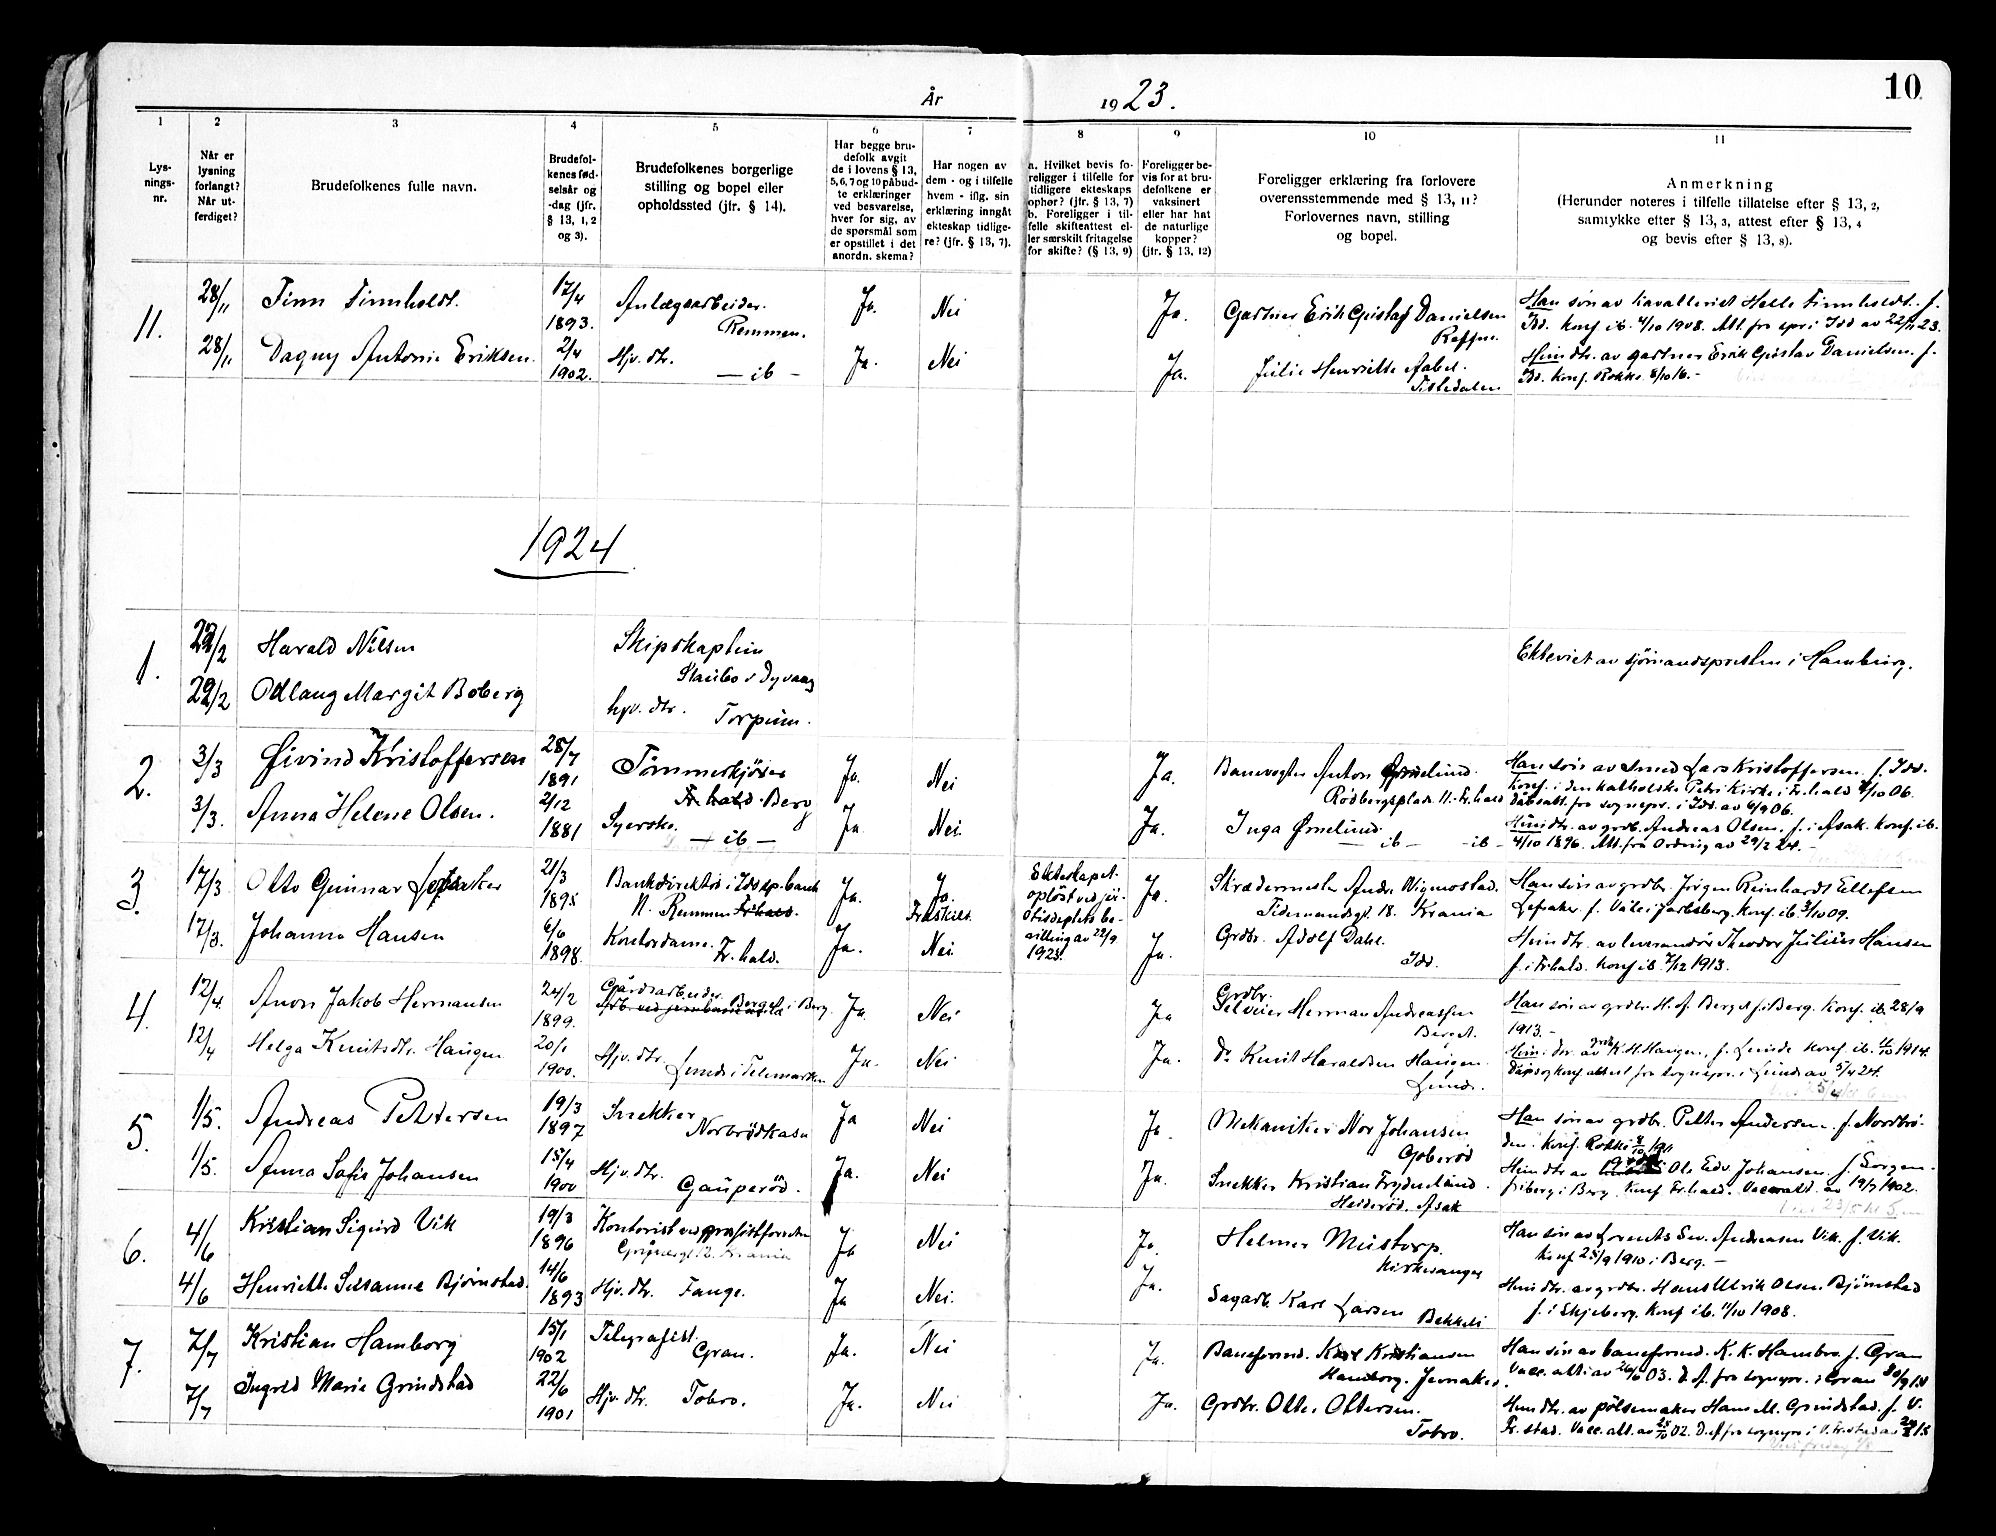 10
År
19 23.
1
2
3
4
5
6
7
8
9
10
11
Lys-
nings-
nr.
Når er
lysning
forlangt?
Når ut-
ferdiget?
Brudefolkenes fulle navn.
Brudefol-
kenes fød-
selsår og
-dag (jfr.
§ 13, 1, 2
og 3).
Brudefolkenes borgerlige
stilling og bopel eller
opholdssted (jfr. § 14).
Har begge bru-
defolk avgit
de i lovens § 13,
5, 6, 7 og 10 påbud-
te erklæringer
ved besvarelse,
hver for sig, av
de spørsmål som
er opstillet i det
anordn. skema?
Har nogen av
dem - og i tilfelle
hvem - iflg. sin
erklæring inngåt
ekteskap tidlige-
re? (jfr. § 13, 7).
a. Hvilket bevis fo-
religger i tilfelle for
tidligere ekteskaps
ophør? (jfr. § 13, 7)
b. Foreligger i til-
felle skifteattest el-
ler særskilt fritagelse
for skifte? (§ 13, 9)
Foreligger be-
vis for at bru-
defolkene er
vaksinert
eller har hat
de naturlige
kopper?
(jfr. § 13, 12)
Foreligger erklæring fra forlovere
overensstemmende med § 13, 11?
Forlovernes navn, stilling
og bopel.
Anmerkning
(Herunder noteres i tilfelle tillatelse efter § 13, 2,
samtykke efter § 13, 3, attest efter § 13, 4
og bevis efter § 13, 8).
11.
28/11
Finn Finnholdt.
17/4
1893.
Anlægsarbeider.
Remmen.
Ja.
Nei
Ja.
Gartner Erik Gustaf Danielsen
Han søn av kavallerist Halle Finnholdt. f.
Idd. konf. ib. 4/10 1908. Att. fra spr. i Idd av 22/11 23.
28/11
Dagny Antonie Eriksen.
2/4
1902.
Hjv. dtr.
— ib —
Ja.
Nei
Ja.
Julie Henriette Aabel.
Tistedalen
Hun dtr. av gartner Erik Gustav Danielsen. f.
Idd. konf. Rokke 8/10 16. -
1924
1.
22/2
Harald Nilsen
Skipskaptein
Staubo v Dyvaag
Ekteviet av sjømandspresten i Hamburg.
22/2
Odlaug Margit Boberg
hjv. dtr. Torpum.
2.
3/3
Øivind Kristoffersen
28/7
1891
Tømmerkjører
Fr.hald. Berg
Ja.
Nei
Ja.
Banevogter Anton Ørnelund.
Rødbergsplads 11. Fr.hald
Han søn av smed Lars Kristoffersen. f. Idd.
Konf. i den katholske Petri Kirke i Fr.hald 4/10 06.
Dåbsatt. fra sognepr. i Idd. av 6/9 06.
3/3.
Anna Helene Olsen.
2/12
1881
Syerske.
— ib —
Ja
Nei.
Ja.
Inga Ørnelund.
— ib — -ib-
Hun dtr. av grdb. Andreas Olsen, f. i Asak. konf. ib.
4/10 1896. Att. fra Ordning av 29/2 24. -
3.
17/3
Otto Gunnar
21/3
1895
Bankdirektør i Idd sp.bank
N. Remmen Fr.hald.
Ja.
Ja.
Fraskilt.
Ekteskapet
opløst ved ju-
stisdeptets be-
villing av 22/9
1923.
Ja.
Skrædermester Andr. Wigmostad.
Tidemandsgt. 18. Krania
Han søn av grdbr. Jørgen Reinhardt Ellefsen
17/3.
Johanne Hansen
6/6
1898.
Kontordame.
Fr.hald.
Ja.
Nei.
Ja.
Grdbr. Adolf Dahl.
Idd.
Hun dtr. av leverandør Theodor Julius Hansen
f. i Fr.hald. konf ib. 7/12 1913.
4.
12/4.
Anon Jakob Hermansen
24/2
1899.
Gårdsarbeider
Berget i Berg.
Ja.
Nei
Ja
Grdbr.
Selveier Herman Andreassen
Berget.
Han søn av grdbr. H. A. Berget f. i Berg. Konf. ib. 28/9
1913. -
12/4
Helga Knutsdtr. Haugen
20/1
1900.
Hjv. dtr.
Lunde i Telemarken
Ja.
Nei
Ja.
Do Knut Haraldsen Haugen.
Lunde.
Hun dtr. av grdb. K. H. Haugen, f. Lunde konf. ib. 11/10 1914.
Dåps og konf. attest fra sognepr. i Lunde av 5/4 24.
5.
1/5.
Andreas Pettersen
19/3
1897
Snekker
Norbrødkasa
Ja
Nei
Ja.
Mekaniker Nor Johansen
Goberød
Han søn av grdbr. Petter Andersen. f. Nordbrø-
den. konf. Rokke 8/10 1911
1/5.
Anna Sofie Johansen
15/4
1900
Hjv. dtr.
Gauperød.
Ja.
Nei
Ja.
Snekker Kristian Frydenlund.
Heiderød. Asak
Hun dtr. av Ole Edv. Johansen. f. Sorgen-
friberg i Berg. Konf Fr.hald. Vacc.att. av 19/7 1902.
6.
4/6
Kristian Sigurd Vik
19/3
1896
Ja
Nei
Ja.
Helmer Mustorp.
Kirkevanger
Han søn av Lorents Sev. Andreasen Vik. f. Vik.
konf 25/9 1910 i Berg. -
4/6
Henriette Susanne Bjørnstad.
14/6
1893
Hjv. dtr. Fange.
Ja
Nei.
Ja.
Sagarb. Karl Larsen Bekkeli
Hun dtr. av grdbr. Hans Ulrik Olsen Bjørnstad
f. i Skjeberg. konf ib. 11/10 1908.
7.
7/7
Kristian Hamborg
15/1
1902
Telegrafist.
Gran.
Ja.
Nei
Ja.
Baneformd. Karl Kristiansen
Hamborg. Jevnaker.
Han søn av baneformd. K. K. Hambro. f. Gran
7/7
Ingrid Marie Grindstad
22/6
1901
Hjv. dtr. Tobro.
Ja.
Nei
Ja.
Grdbr. Otto Ottersen.
Tobro.
Hun dtr. av pølsemaker Hans M. Grindstad. f. V.